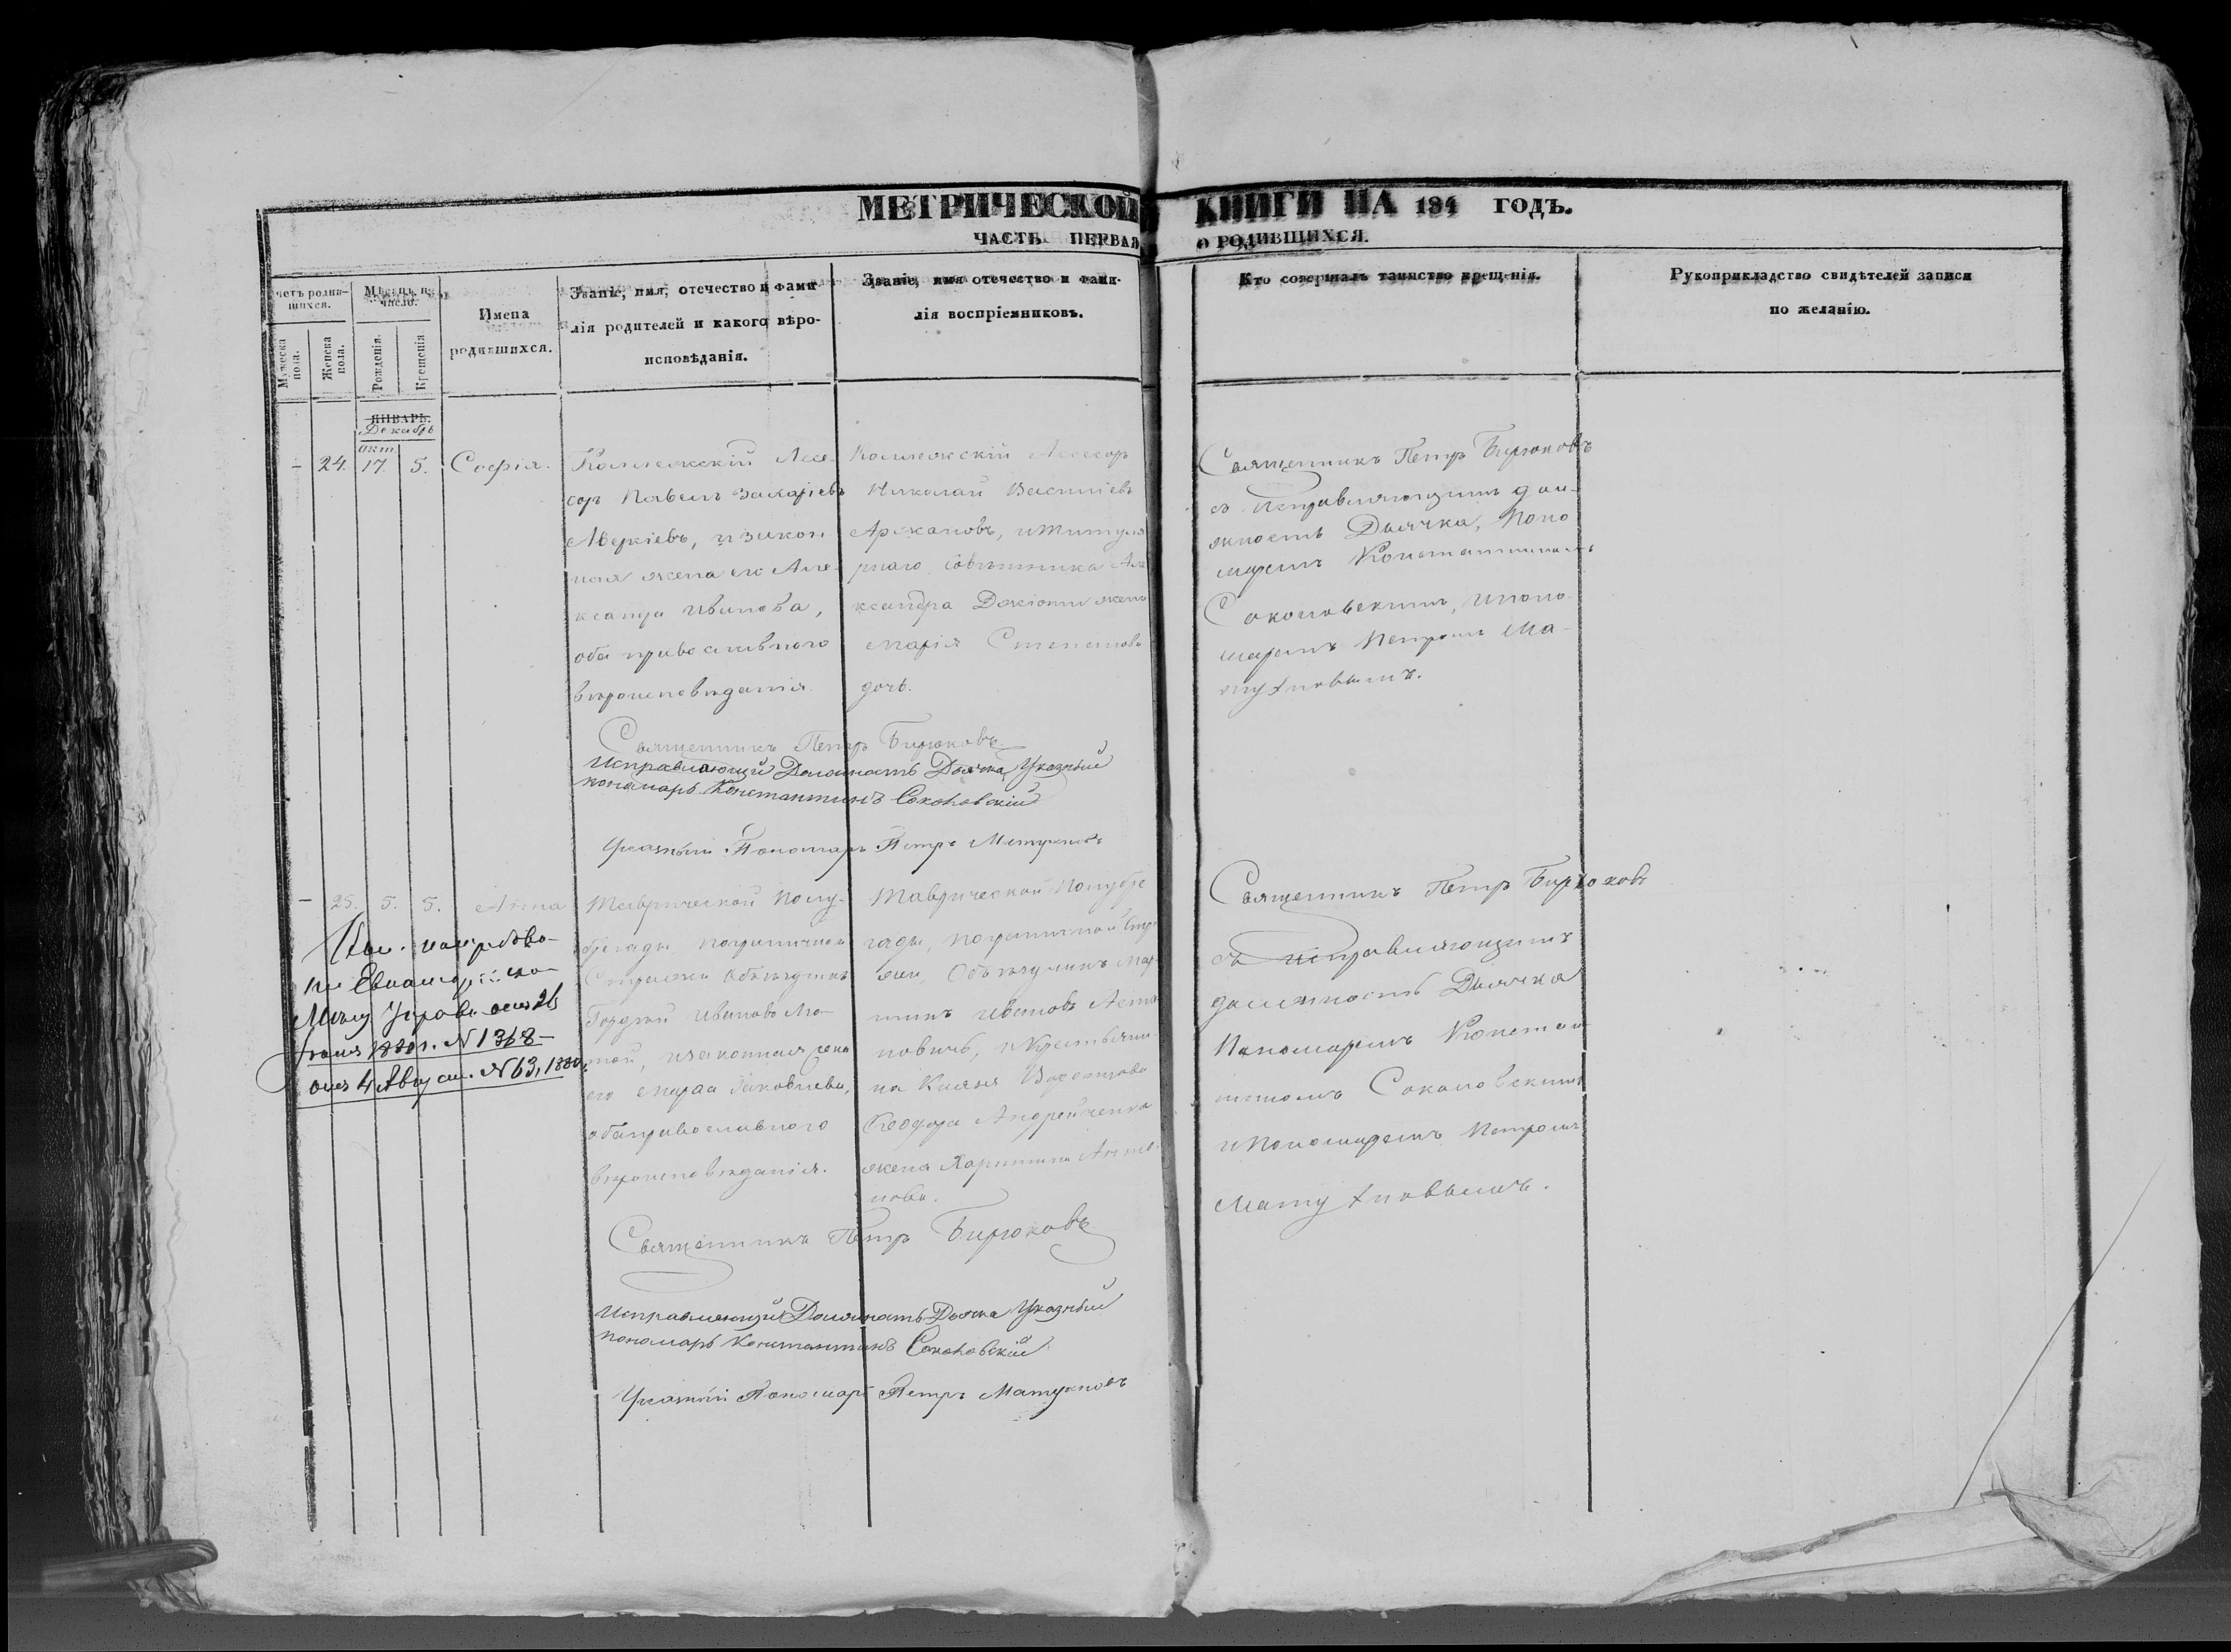 МЕТРИЧЕСКОЙ КНИГИ НА 184 ГОДЪ.
ЧАСТЬ ПЕРВАЯ О РОДИВШИХСЯ.
четъ родив-
шихся.
Мѣсяцъ и
число.
Мужеска
пола.
Женска
пола.
Рожденія.
Крещенія
Имена
родившихся.
Званіе, имя, отечество и фами-
лія родителей и какого вѣро-
исповѣданія.
Званіе, имя отечество и фами-
лія воспріемниковъ.
Кто совершалъ таинство крещенія.
Рукоприкладство свидѣтелей записи
по желанію.
ЯНВАРЬ.
Декабрь
окт
– 24. 17. 5. Софія.
Коллежскій Ассе-
соръ Павелъ Захаріевъ
Меркіевъ, и закон
ная жена его Але-
ксандра Иванова,
оба православнаго
вѣроисповѣданія.
Коллежскій Ассесоръ
Николай Василіевъ
Аркановъ, и Титуля
рнаго совѣтника Але
ксандра жена
Марія Степанова
дочь.
Священникъ Петръ Бирюковъ
съ исправляющимъ дол-
жность Дьячка, Поно
маремъ Константиномъ
Соколовскимъ, и поно-
маремъ Петромъ Ма-
тухновымъ.
Священникъ Петръ Бирюковъ
Исправляющій Должность Дьячка Указный
пономарь Константинъ Соколовскій
Указный Пономарь Петръ Матухновъ
– 25. 5. 5. Анна
Таврической Полу-
бригады, пограничной
Стражи Объѣздчикъ
Гордѣй Ивановъ Лю-
той, и законная жена
его Марфа Яковлева,
оба православнаго
вѣроисповѣданія.
Таврической Полубри
гады, пограничной Стра
жи, Объѣздчикъ Мар
тинъ Ивановъ
новичъ, и Крестьяни
на Князя Воронцова
Ѳеодора Андрейченка
жена Харитина Анто
нова.
Священникъ Петръ Бирюковъ
съ исправляющимъ
должность Дьячка
Пономаремъ Констан-
тиномъ Соколовскимъ
и Пономаремъ Петромъ
Матухновымъ.
Управ отъ 26
1880 г. № 1368
отъ 4 Август. № 63, 1880.
Священникъ Петръ Бирюковъ
Исправляющій Должность Дьячка Указный
пономарь Константинъ Соколовскій
Указный Пономарь Петръ Матухновъ